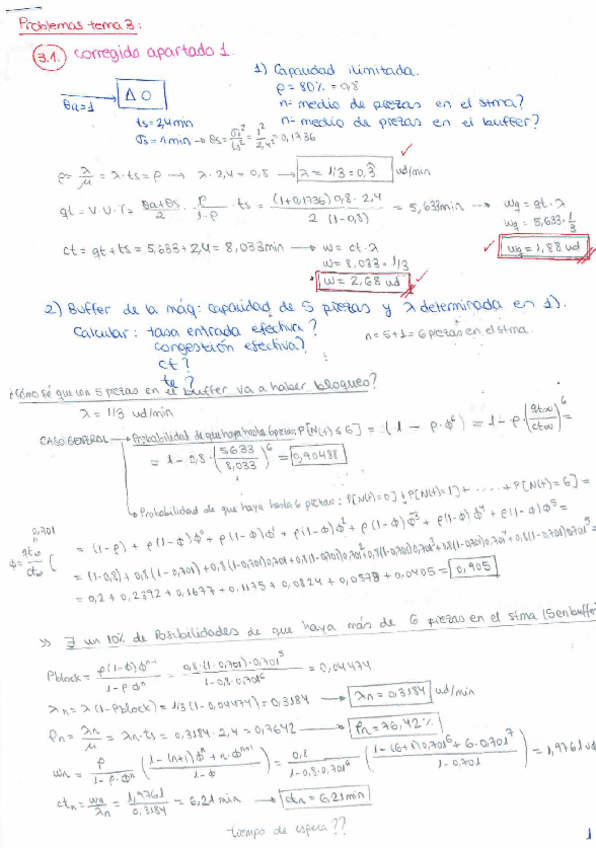 Problemas tema 3:
3.1. corregido apartado 1.
1) Capacidad ilimitada.
ρ = 80% = 0,8
nº medio de piezas en el stma?
nº medio de piezas en el buffer?
θa=1
ts=2,4min
σs=1min → θs = σs²/ts² = 1²/2,4² = 0,1736
ρ = λ/μ = λ·ts = ρ → λ·2,4 = 0,8 → λ = 1/3 = 0,3 ud/min
qt = V·U·T = (θa+θs)/2 · ρ/(1-ρ) · ts = (1+0,1736)0,8·2,4 / 2(1-0,8) = 5,633min → wq = qt·λ
wq = 5,633·1/3
wq = 1,88 ud
ct = qt+ts = 5,633+2,4 = 8,033min → w = ct·λ
w = 8,033·1/3
w = 2,68 ud
2) Buffer de la máq: capacidad de 5 piezas y λ determinada en 1).
Calcular: tasa entrada efectiva?
n=5+1=6 piezas en el stma.
congestión efectiva?
ct?
te?
¿Cómo sé que con 5 piezas en el buffer va a haber bloqueo?
λ = 1/3 ud/min
CASO GENERAL → Probabilidad de que haya hasta 6 piezas: P[N(t)≤6] = (1-ρ·Φ⁶) = 1-ρ(qt∞/ct∞)⁶ =
= 1-0,8·(5633/8,033)⁶ = 0,90488
Probabilidad de que haya hasta 6 piezas: P[N(t)=0]+P[N(t)=1]+ ..... +P[N(t)=6] =
0,701
Φ = qt∞/ct∞
= (1-ρ)+ρ(1-Φ)Φ⁰+ρ(1-Φ)Φ¹+ρ(1-Φ)Φ²+ρ(1-Φ)Φ³+ρ(1-Φ)Φ⁴+ρ(1-Φ)Φ⁵=
= 0,2+0,2392+0,1677+0,1175+0,0824+0,0578+0,0405 = 0,905
>> ∃ un 10% de Posibilidades de que haya más de 6 piezas en el stma (5enbuffer
Pblock = ρ(1-Φ)Φⁿ⁻¹/(1-ρΦⁿ) = 0,8·(1-0,701)·0,701⁵/(1-0,8·0,701⁶) = 0,04474
λn = λ(1-Pblock) = 1/3(1-0,04474) = 0,3184 → λn=0,3184 ud/min
ρn = λn/μ = λn·ts = 0,3184·2,4 = 0,7642 → ρn=76,42%
wn = ρ/(1-ρ·Φⁿ) (1-(n+1)Φⁿ+n·Φⁿ⁺¹ / 1-Φ) = 0,8/(1-0,8·0,701⁶) (1-(6+1)0,701⁶+6·0,701⁷ / 1-0,701) = 1,9761 ud
ctn = wn/λn = 1,9761/0,3184 = 6,21min → ctn=6,21min
tiempo de espera??
1